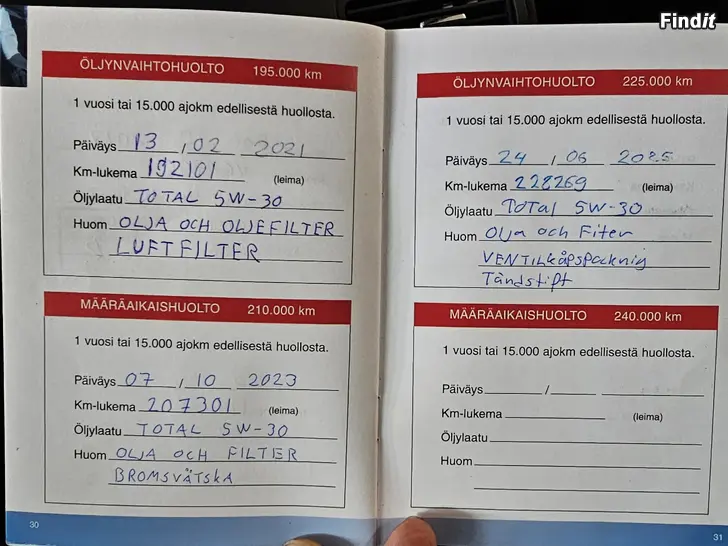 Findit
ÖLJYNVAIHTOHUOLTO 195.000 km
1 vuosi tai 15.000 ajokm edellisestä huollosta.
Päiväys 13 / 02 2021
Km-lukema 192101 (leima)
Öljylaatu TOTAL 5W-30
Huom OLJA OCH OLJEFILTER
LUFTFILTER
MÄÄRÄAIKAISHUOLTO 210.000 km
1 vuosi tai 15.000 ajokm edellisestä huollosta.
Päiväys 07 / 10 2023
Km-lukema 207301 (leima)
Öljylaatu TOTAL 5W-30
Huom OLJA OCH FILTER
BROMSVÄTSKA
30
ÖLJYNVAIHTOHUOLTO 225.000 km
1 vuosi tai 15.000 ajokm edellisestä huollosta.
Päiväys 24 / 06 2025
Km-lukema 228269 (leima)
Öljylaatu TOTAL 5W-30
Huom Olja och Filter
VENTILkåpspacknig
Tändstift
MÄÄRÄAIKAISHUOLTO 240.000 km
1 vuosi tai 15.000 ajokm edellisestä huollosta.
Päiväys /
Km-lukema (leima)
Öljylaatu
Huom
31